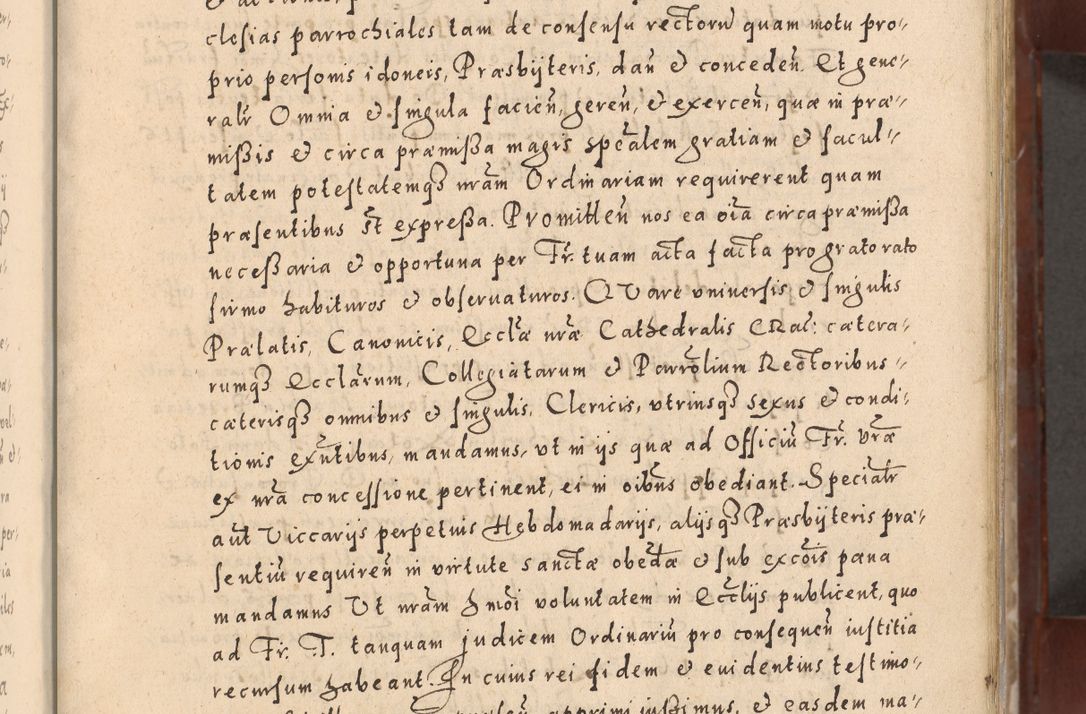 clesias parrochiales tam de consensu rectorū quam motu pro-
prio personis idoneis, Præsbÿteris, dań & concedeń. Et gene-
ralr̃ Omnia & singula facień, gereń, & exerceń, quæ in præ-
mißis & circa præmißa magis spēalem gratiam & facul-
tatem potestatemqȝ nr̃am Ordinariam requirerent quam
præsentibus s̃t expreßa. Promitteń nos ea oīa circa præmißa
neceßaria & opportuna per Fr̃. tuam acta facta pro grato rato
firmo habituros & obseruaturos. QVare vniuersis & singulis
Prælatis, Canonicis, Eccłæ nr̃æ Cathedralis Crac: cætera-
rumqȝ Eccłarum, Collegiatarum & Parrõlium Rectoribus
cæterisqȝ omnibus & singulis, Clericis, vtriusqȝ sexus & condi-
tionis exñtibus, mandamus, vt in ijs quæ ad Officiū Fr̃. vr̃æ
ex nr̃a concessione pertinent, ei in oibñs obediant. Specialr̃
aut̃ Viccarijs perpetuis Hebdomadarijs, alijsqȝ Præsbÿteris præ-
sentiū requireń in virtute sanctæ obedæ & sub excõis pæna
mandamus Vt nr̃am hmõi voluntatem in Ecclijs publicent, quo
ad Fr̃. T. tanquam judicem Ordinariū pro consequeń iustitia
recursum habeant. In cuius rei fidem & euidentius testimo-
apprimi iußimus, & easdem ma-